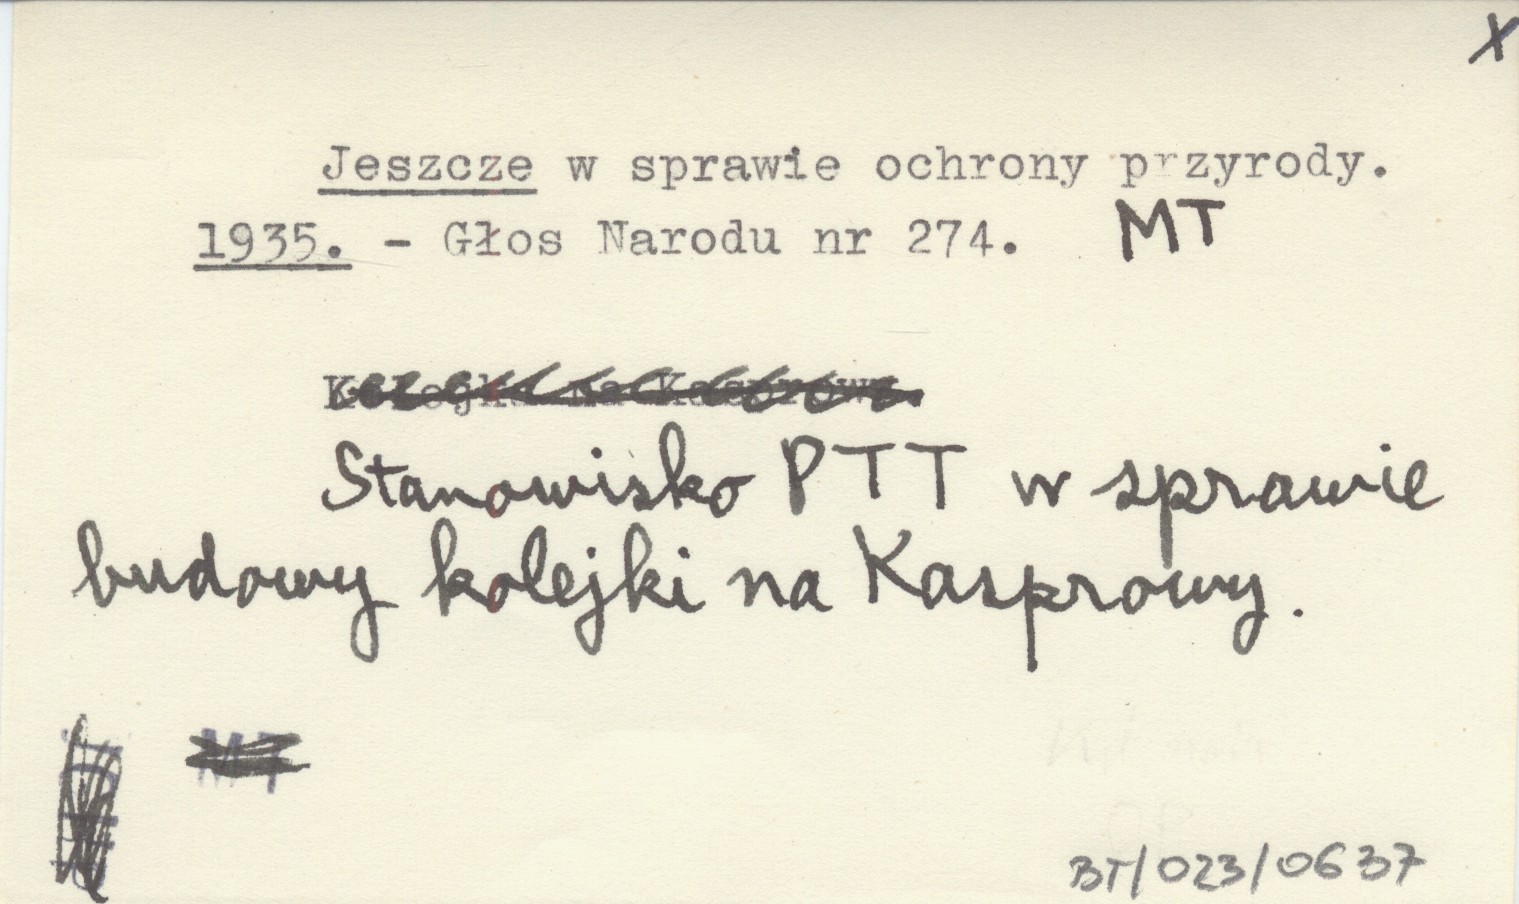 X
Jeszcze w sprawie ochrony przyrody.
1935. - Głos Narodu nr 274. MT
Kolejka na Kasprowy.
Stanowisko PTT w sprawie
budowy kolejki na Kasprowy.
MT
BT/023/0637